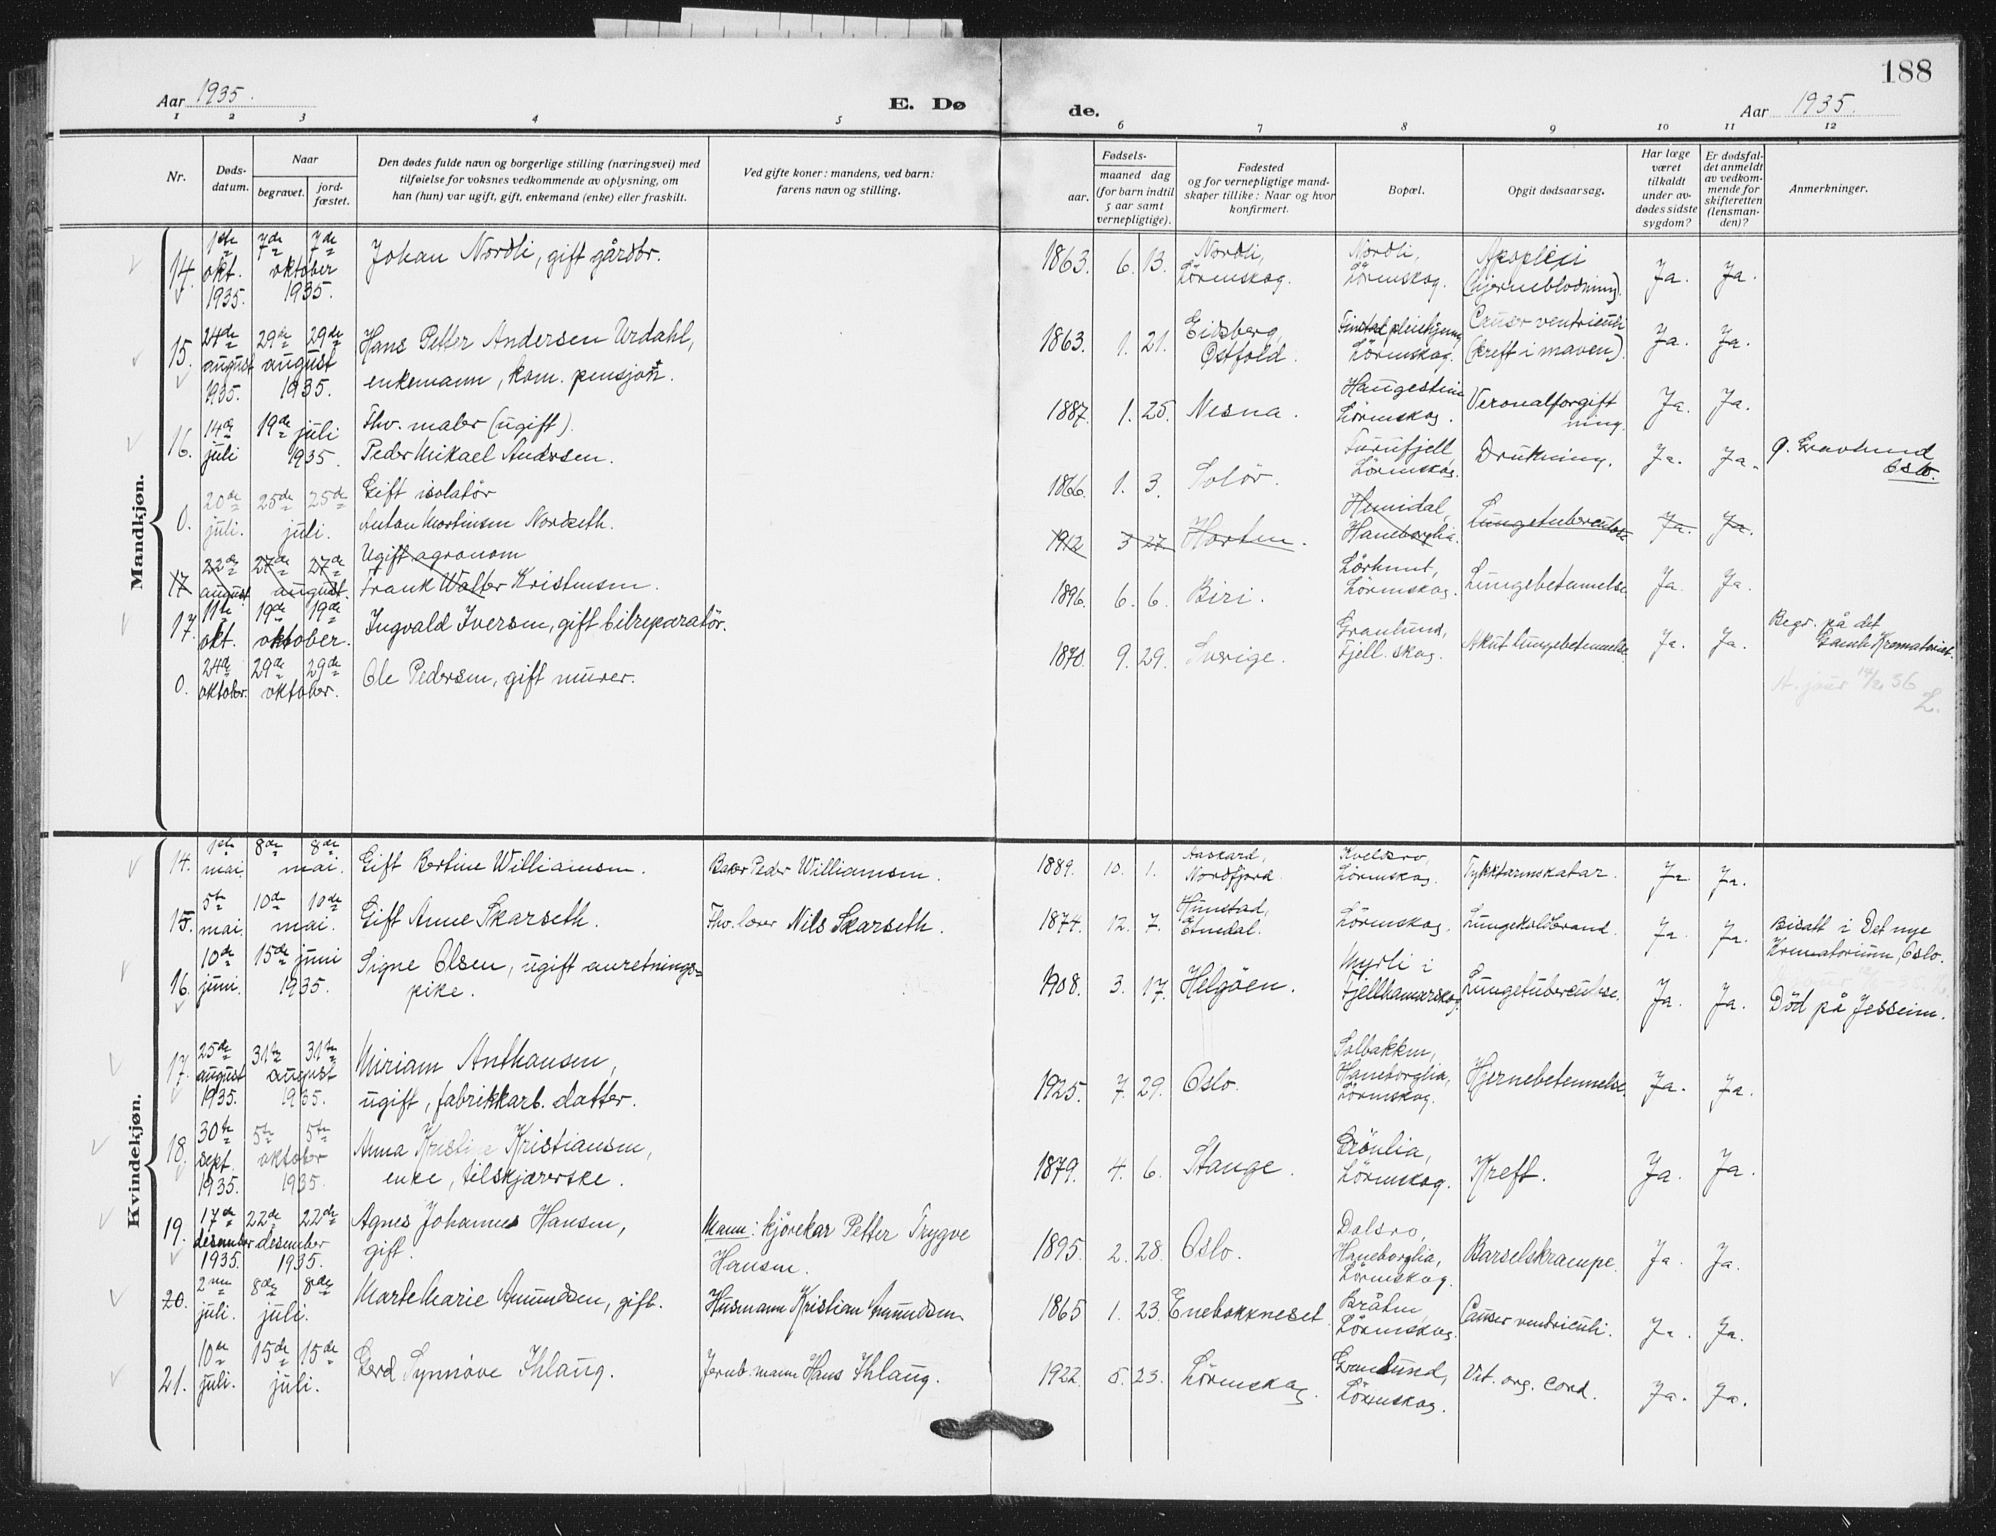 188
Aar 1935.
E. Dø
de.
Aar 1935.
1 2 3 4 5 6 7 8 9 10 11 12
Nr.
Døds-
datum.
Naar
begravet.
jord-
fæstet.
Den dødes fulde navn og borgerlige stilling (næringsvei) med
tilføielse for voksnes vedkommende av oplysning, om
han (hun) var ugift, gift, enkemand (enke) eller fraskilt.
Ved gifte koner: mandens, ved barn:
farens navn og stilling.
Fødsels-
aar.
maaned dag
(for barn indtil
5 aar samt
vernepligtige).
Fødested
og for vernepligtige mand-
skaper tillike: Naar og hvor
konfirmert.
Bopæl.
Opgit dødsaarsag.
Har læge
været
tilkaldt
under av-
dødes sidste
sygdom?
Er dødsfal-
det anmeldt
av vedkom-
mende for
skifteretten
(lensman-
den)?
Anmerkninger.
Mandkjøn.
14. 1ste okt. 1935. 7de 7de oktober 1935. Johan Nordli, gift gårdbr. 1863. 6. 13. Nordli, Lörenskog. Nordli, Lörenskog. Apopleji (hjerneblödning). Ja. Ja.
15. 24de august 1935. 29de 29de august 1935. Hans Petter Andersen Urdahl,
enkemann, kom. pensjon. 1863. 1. 21. Eidsberg Östfold. Lörenskog. Cancer ventriculi (kreft i maven). Ja. Ja.
16. 14de juli 19de juli 1935. Fhv. maler (ugift).
Peder Mikael Andersen. 1887. 1. 25. Nesna. Haugestein Lörenskog. Veronalforgiftning. Ja. Ja.
0. 20de juli. 25de 25de juli. Gift isolatör
Anton Martinsen Nordseth. 1866. 1. 3. Solör. Furufjell Lörenskog. Drukning. Ja. Ja. Gravlund Oslo.
17 22de august 27de 27de august. Ugift agronom
Frank Walter Kristensen. 1912 3 27 Horten. Hemidal, Haneborglia. Lungetuberculose Ja. Ja.
17. 11te okt. 19de 19de oktober. Ingvald Iversen, gift bilreparatör. 1896. 6. 6. Biri. Lörenskog. Lungebetennelse. Ja. Ja.
0. 24de oktober. 29de 29de oktober. Ole Pedersen, gift murer. 1870. 9. 29. Sverige. Granlund, Fjell. skog. Akut lungebetennelse Ja. Ja. Begr. på det Gamle Krematoriet.
Kvindekjøn.
14. 1ste mai. 8de 8de mai. Gift Bertine Williamsen. Baker Peder Williamsen. 1889. 10. 1. Aaskard, Nordfjord. Kveldsro, Lörenskog. Tykktarmskatar. Ja Ja.
15. 5te mai. 10de 10de mai. Gift Anne Skarseth. Fhv. lærer Nils Skarseth. 1874. 12. 7. Hunstad, Etnedal. Lörenskog. Lungekoldbrand. Ja. Ja. Bisatt i Det nye
Krematorium Oslo.
16. 10de juni. 15de juni 1935. Signe Olsen, ugift anretnings=
pike. 1908. 3. 17. Helgöen. Myrli i Fjellhamarskog. Lungetuberculose. Ja. Ja. Död på Jessheim.
17. 25de august 1935. 31te 31te august 1935. Miriam Anthonsen,
ugift, fabrikkarb. datter. 1925. 7. 29. Oslo. Solbakken, Haneborglia, Lörenskog. Hjernebetennelse. Ja. Ja.
18. 30te sept. 1935. 5te 5te oktober 1935. Anna Kristine Kristiansen,
enke, tilskjærerske. 1879. 4. 6. Stange. Grönlia, Lörenskog. Kreft. Ja. Ja.
19. 17de desember 1935. 22de 22de desember 1935. Agnes Johannes Hansen,
gift. Mann: kjörekar Petter Trygve
Hansen. 1895. 2. 28. Oslo. Dalsro, Haneborglia, Lörenskog. Barselskrampe. Ja. Ja.
20. 2nen juli. 8de 8de juli. Marte Marie Amundsen, gift. Husmann Kristian Amundsen 1865 1. 23. Enebakkneset. Bråten Lörenskog. Cancer ventriculi. Ja. Ja.
21. 10de juli. 15de 15de juli. Gerd Synnöve Ihlaug. Jernb.mann Hans Ihlaug. 1922. 5. 23. Lörenskog. Granlund, Lörenskog. Vit. org. cord. Ja. Ja.